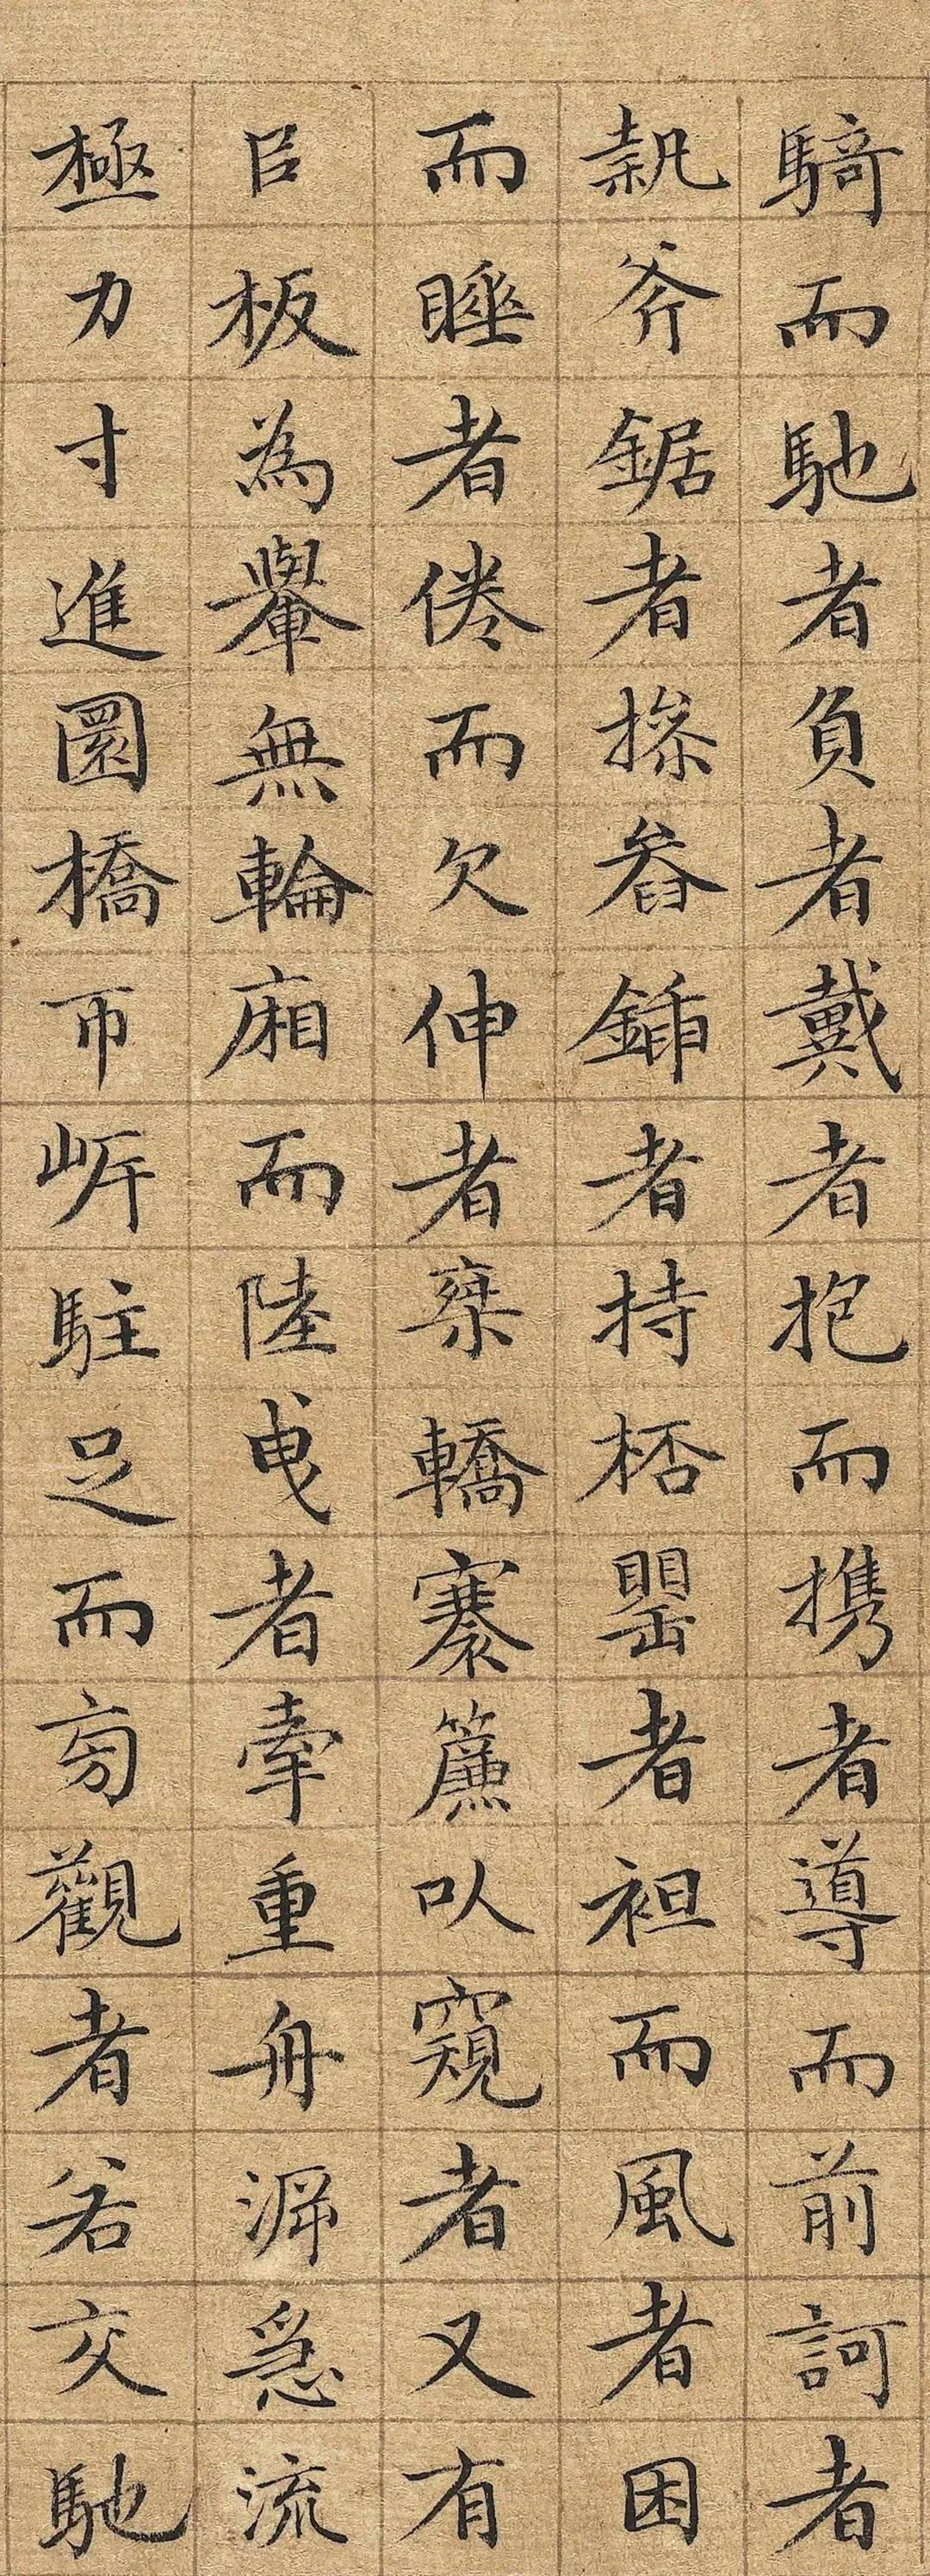 騎而馳者負者戴者抱而携者導而前訶者
執斧鋸者操畚鍤者持桮罌者袒而風者困
而睡者倦而欠伸者乗轎褰簾以窺者又有
巨板為轝無輪廂而陸曳者牽重舟溯急流
極力寸進圜橋帀岸駐足而旁觀者若交馳